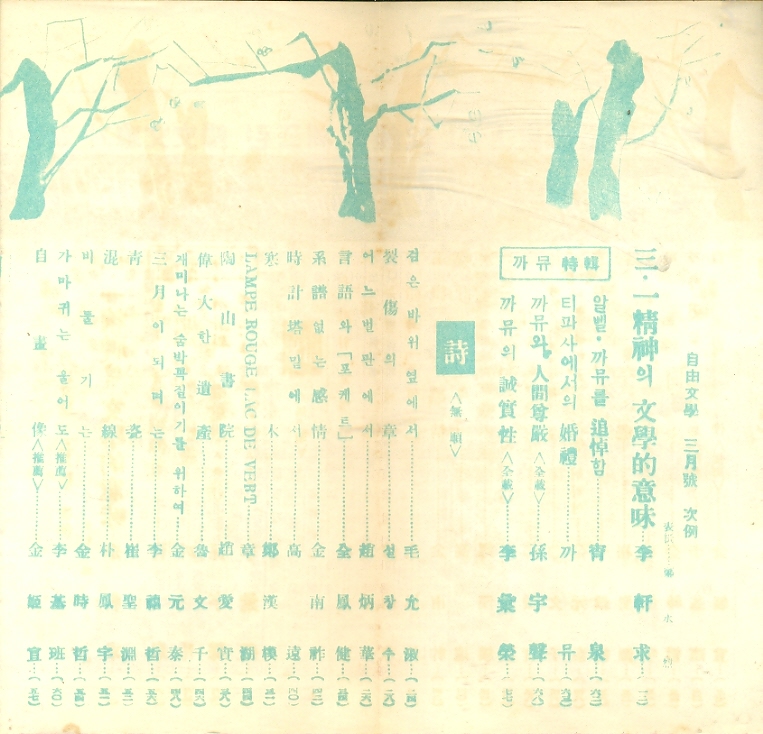 自由文學 三月號 次例
三·一精神의 文學的意味……李軒求…(一二)
까뮤特輯
알벨·까뮤를 追悼함……宵泉…(六二)
티파사에서의 婚禮……까뮤
까뮤와 人間尊嚴〈全載〉……孫宇聲
까뮤의 誠實性〈全載〉……李彙榮
詩
〈無順〉
검은 바위 옆에서……毛允淑
裂傷의 章……설창수
어느 벌판에서……趙炳華
言語와「포케트」……全鳳健
系譜 없는 感情……金南祚
時計塔 밑에서……高遠
寒木……鄭漢模
LAMPE ROUGE LAC DE VERT……章湖
陶山書院……趙愛實
偉大한 遺産……魯文千
개미나는 숨박꼭질이기를 위하여……金元泰
三月이 되며는……李禧哲
青瓷……崔聖淵
混線……朴鳳宇
비둘기는……金時哲
가마귀는 울어도〈推薦〉……李基班
自畫像〈推薦〉……金姬宣